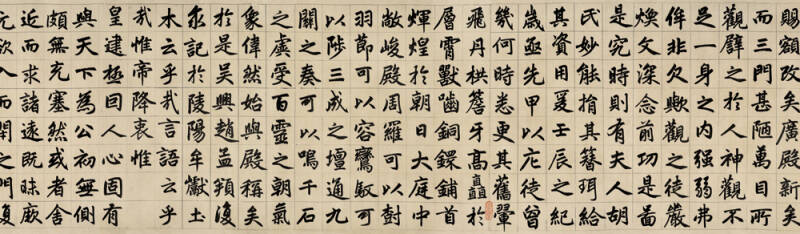 賜額改矣廣殿新矣
而三門甚陋萬目所
觀譬之於人神觀不
足一身之内强弱弗
侔非欠歟觀之徒嚴
煥文深念前功是啚
是究時則有夫人胡
氏妙能捐其簪珥給
其資用爰壬辰之紀
歲亟先甲以庀徒曾
幾何時悉更其舊翬
飛丹栱簷牙高矗於
層霄獸齧銅鐶鋪首
輝煌於朝日大庭中
敞峻殿周羅可以尌
羽節可以容鸞馭可
以陟三成之壇通九
關之奏可以鳴千石
之虡受百靈之朝氣
象偉然始與殿稱矣
於是吳興趙孟頫復
求記於陵陽牟巘土
木云乎哉言語云乎
哉惟帝降衷惟
皇建極囙人心固有
與天下為公初無側
頗無充塞然或者舍
近而求諸遠既昧厥
元欲入而閉之門復